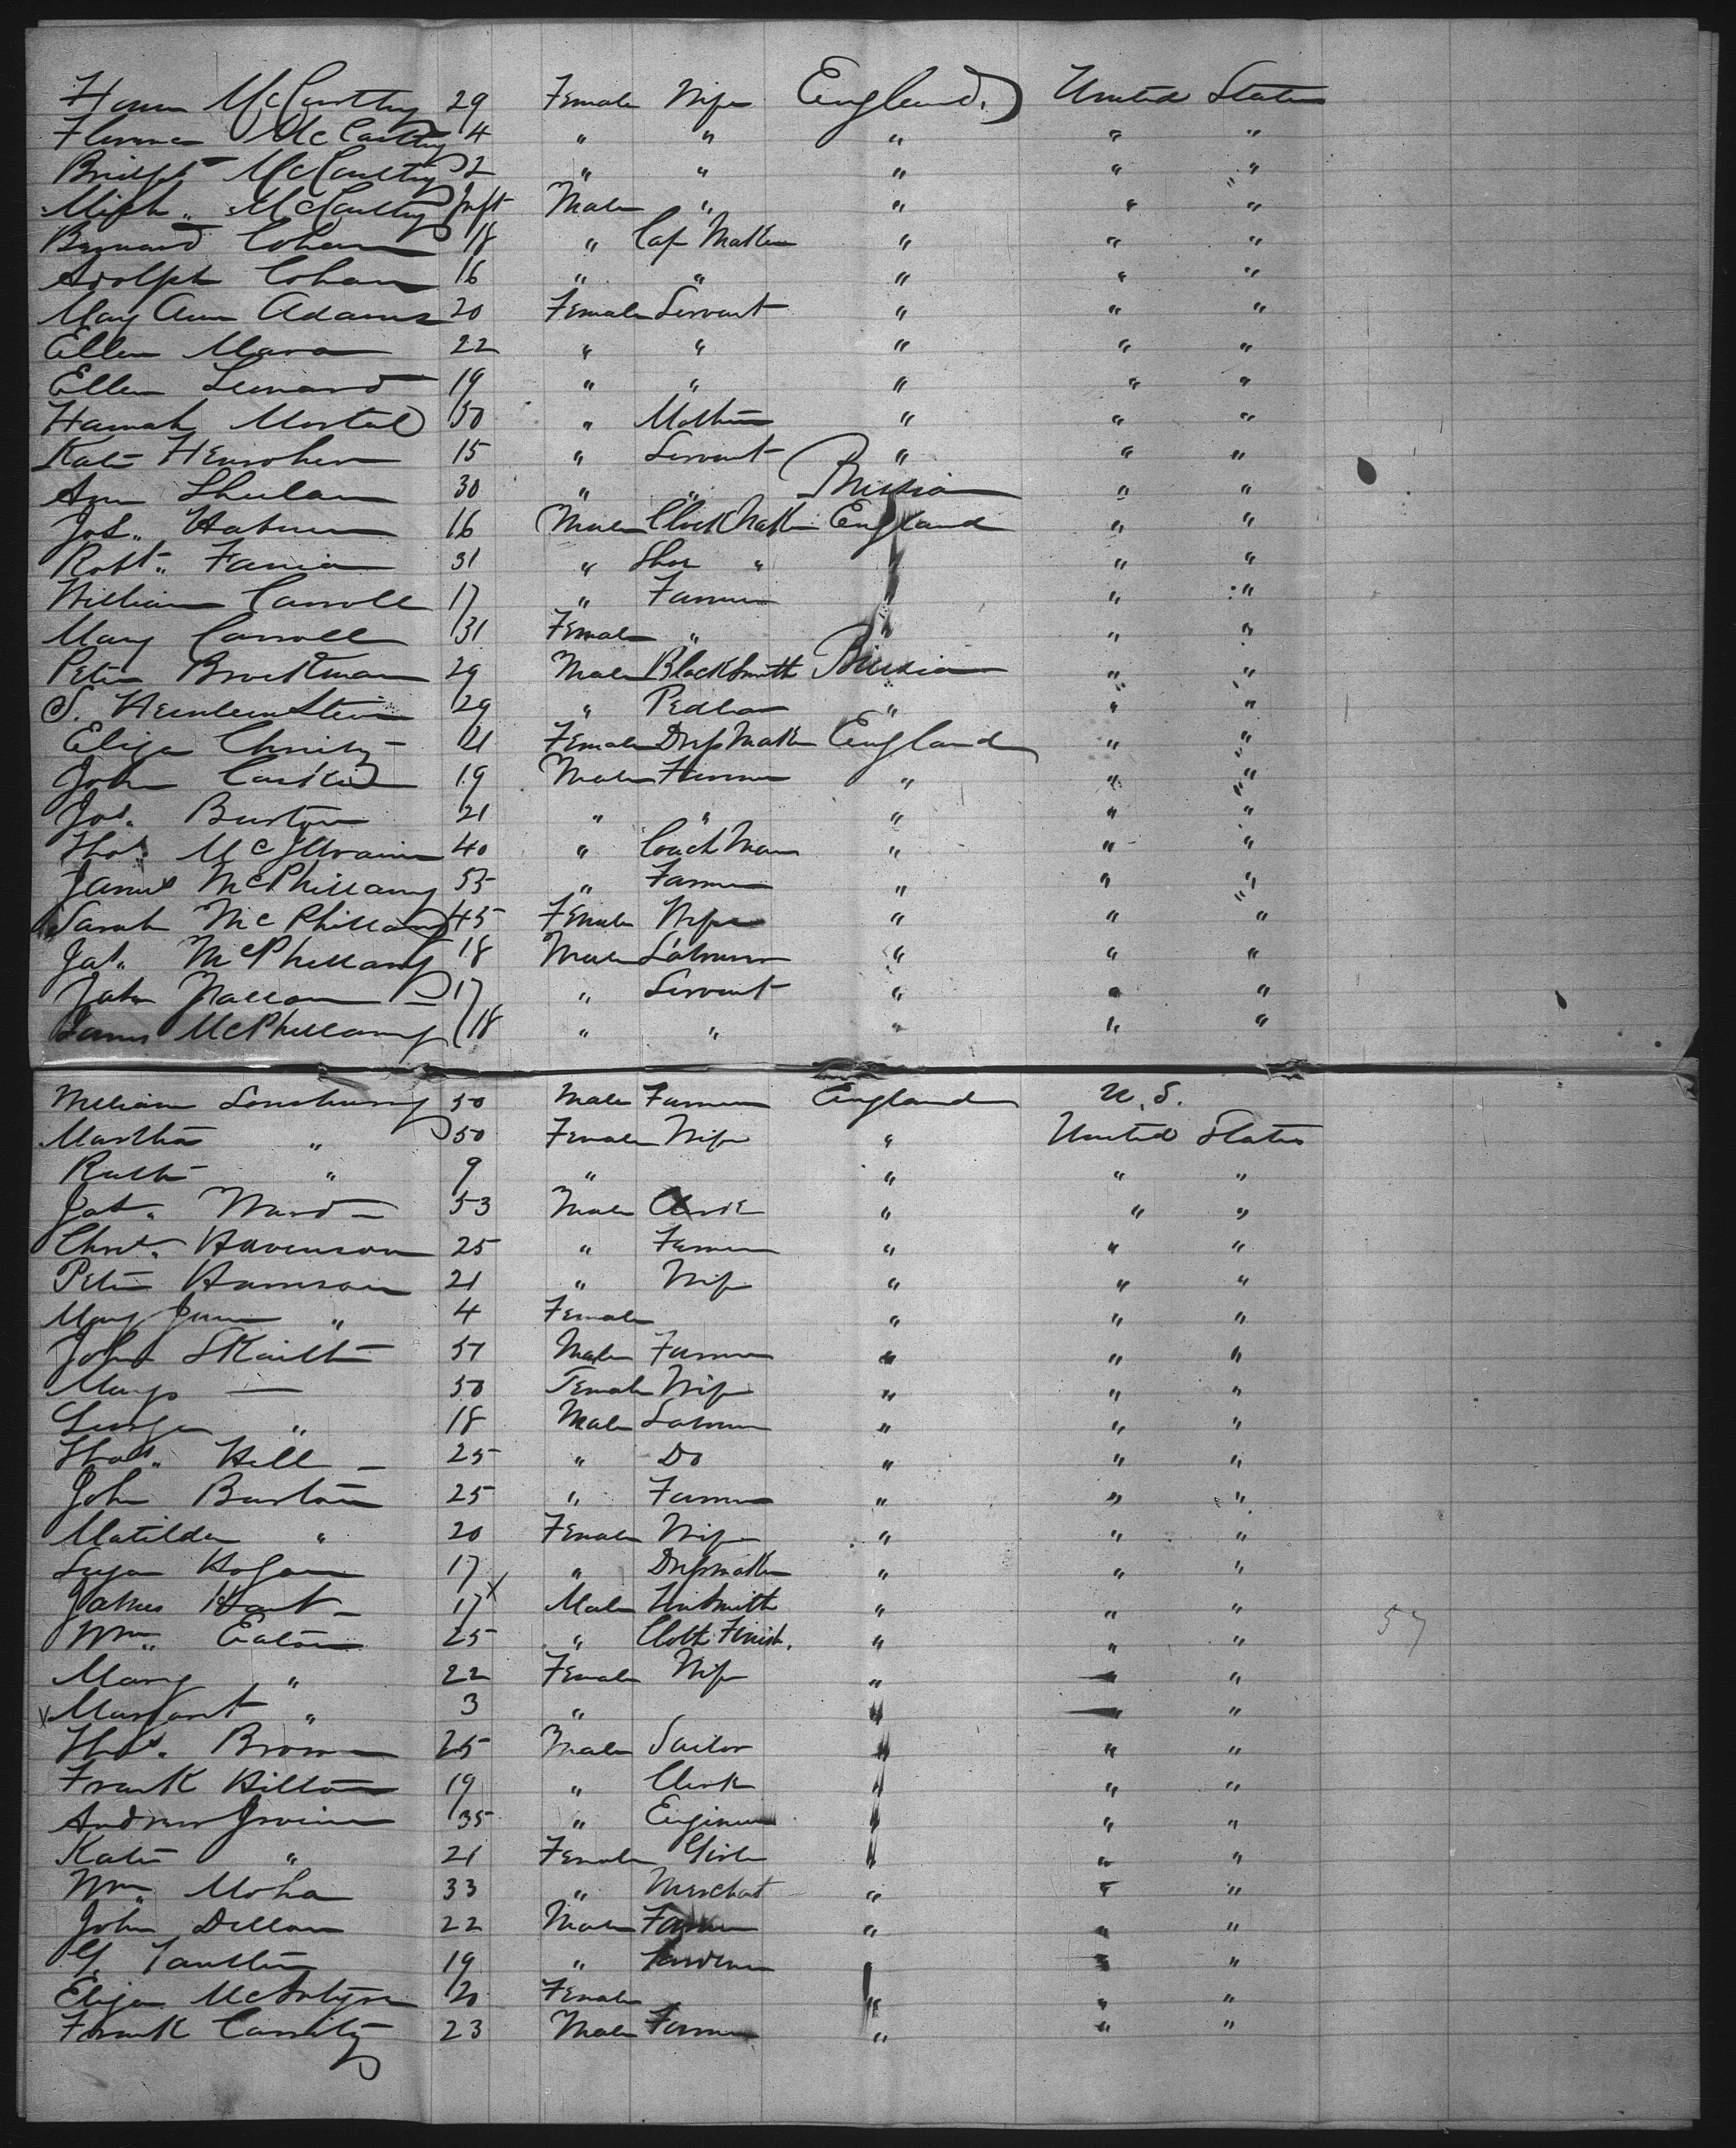 McCarthy 29 Female Wife England United States
Florence McCarthy 4 " " " " "
Bridget McCarthy 2 " " " " "
Mich. McCarthy Inft Male " " " "
Bernard Cohen 18 " Cap Maker " " "
Adolph Cohan 16 " " " " "
Mary Ann Adams 20 Female Servant " " "
Ellen Mara 22 " " " " "
Ellen Leonard 19 " " " " "
Hannah 50 " Mother " " "
Kate 15 " Servant " " "
Ann 30 " " Prussia " "
Jos. 16 Male Clock Maker England " "
Robt. 31 " Shoe " " " "
William Carroll 17 " Farmer " " "
Mary Carroll 31 Female " " " "
Peter Brockman 29 Male BlackSmith Prussia " "
S. 29 " Pedlar " " "
Eliza Christy 21 Female Dress Maker England " "
John 19 Male Farmer " " "
Jos. Burton 21 " " " " "
Thos. McIlvain 40 " Coach Man " " "
James McPhillamy 55 " Farmer " " "
Sarah McPhillamy 45 Female Wife " " "
Jas. McPhillamy 18 Male Labourer " " "
17 " Servant " " "
James McPhillamy 18 " " " " "
William 50 Male Farmer England U.S.
Martha " 50 Female Wife " United States
Ruth " 9 " " " "
Jas. Ward 53 Male Clerk " " "
25 " Farmer " " "
Peter 21 " Wife " " "
Mary Jane " 4 Female " " "
John 51 Male Farmer " " "
Mary — 50 Female Wife " " "
George " 18 Male Labourer " " "
Thos. Hill 25 " Do " " "
John Burton 25 " Farmer " " "
Matilda " 20 Female Wife " " "
Hogan 17 " Dressmaker " " "
James Hart 17 x Male Tinsmith " " "
Wm. Eaton 25 " Cloth Finish. " " " 57
Mary " 22 Female Wife " " "
x Margaret " 3 " " " "
Thos. Brown 25 Male Sailor " " "
Frank Hilton 19 " Clerk " " "
Andrew Irvine 35 " Engineer " " "
Kate " 21 Female Girl " " "
Wm. Moha 33 " Merchat " " "
John Dillon 22 Male Farmer " " "
19 " " " "
Eliza McIntyre 20 Female " " "
Frank Cassity 23 Male Farmer " " "